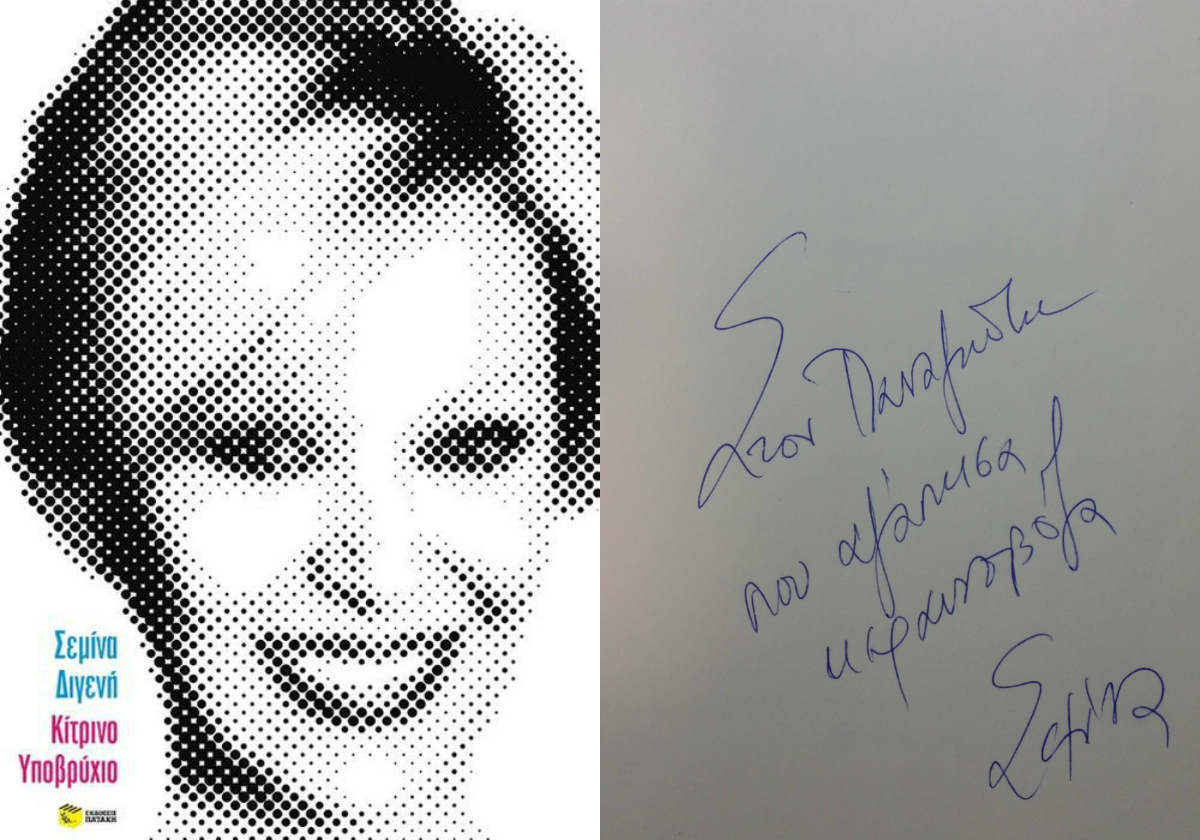 Σεμίνα
Διγενή
Κίτρινο
Υποβρύχιο
ΕΚΔΟΣΕΙΣ
ΠΑΤΑΚΗ
Στον Παναγιώτη
που αγάπησα
κεραυνοβόλα
Σεμίνα